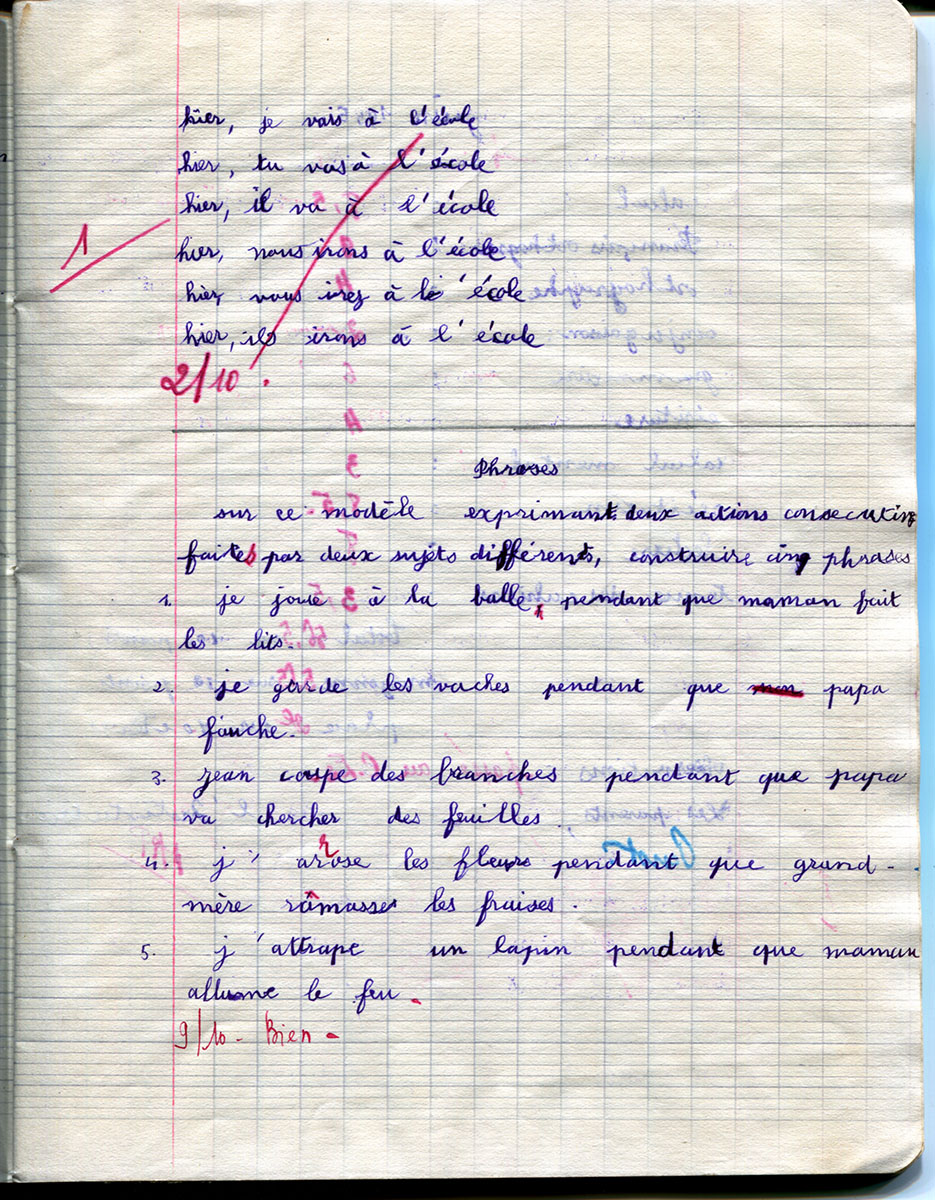 hier, je vais à l'école
hier, tu vas à l'école
hier, il va à l'école
1
hier, nous irons à l'école
hier, vous irez à le école
hier, ils irons à l'école
2/10.
Phrases
sur ce modèle exprimant deux actions consecutive
faites par deux sujets différents, construire cinq phrases
1. je joue à la balle, pendant que maman fait
les lits.
2. je garde les vaches pendant que papa
fauche.
3. Jean coupe des branches pendant que papa
va chercher des feuilles.
4. j'arrose les fleurs pendant que grand-
mère ramasse les fraises.
5. j'attrape un lapin pendant que maman
allume le feu.
9/10 - Bien -